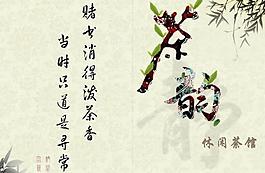 赌书消得泼茶香
当时只道是寻常
茶韵
静
休闲茶馆